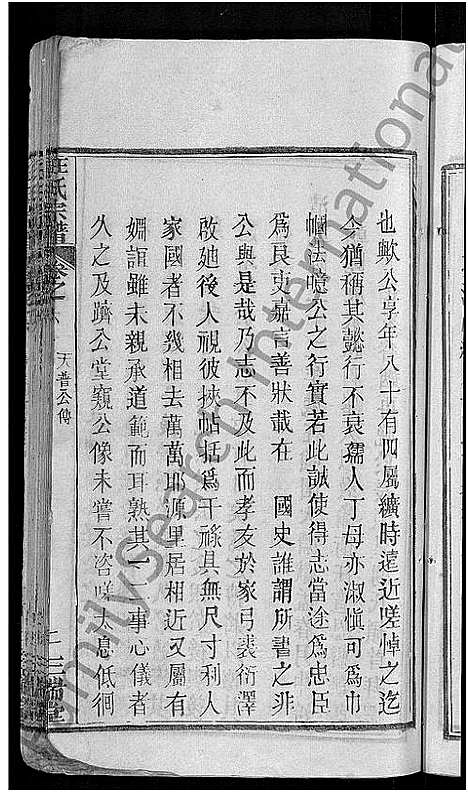 也歟公享年八十有四屬纊時遠近嗟悼之迄
今猶稱其懿行不衰孺人丁母亦淑愼可爲巾
幗法噫公之行實若此誠使得志當途爲忠臣
爲良吏嘉言善狀載在 國史誰謂所書之非
公與是哉乃志不及此而孝友於家弓裘衍澤
啟迪後人視彼挾帖括爲干祿具無尺寸利人
家國者不幾相去萬萬耶源里居相近又屬有
姻誼雖未親承道範而耳熟其一二事心儀者
久之及躋公堂窺公像未嘗不咨嗟太息低徊
汪氏宗譜 卷之
天普公傳
三瑞堂
FamilySearch International